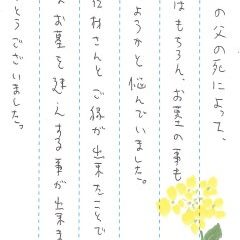 の父の死によって、
はもちろん、お墓の事も
ようかと悩んでいました。
石材さんとご縁が出来たことで
お墓を迷えする事が出来ま
とうございました。